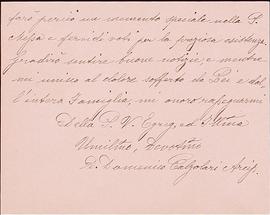 farò perciò un memento speciale nella S.
Messa e fervidi voti per la preziosa esistenza.
Gradirò sentire buone notizie, e mentre
mi unisco al dolore sofferto da Lei e dal-
l'intera Famiglia, mi onoro rassegnarmi
Della S. V. Egreg. ed Ill.ma
Umil.mo, Devot.mo
D. Domenico Calzolari Arcip.